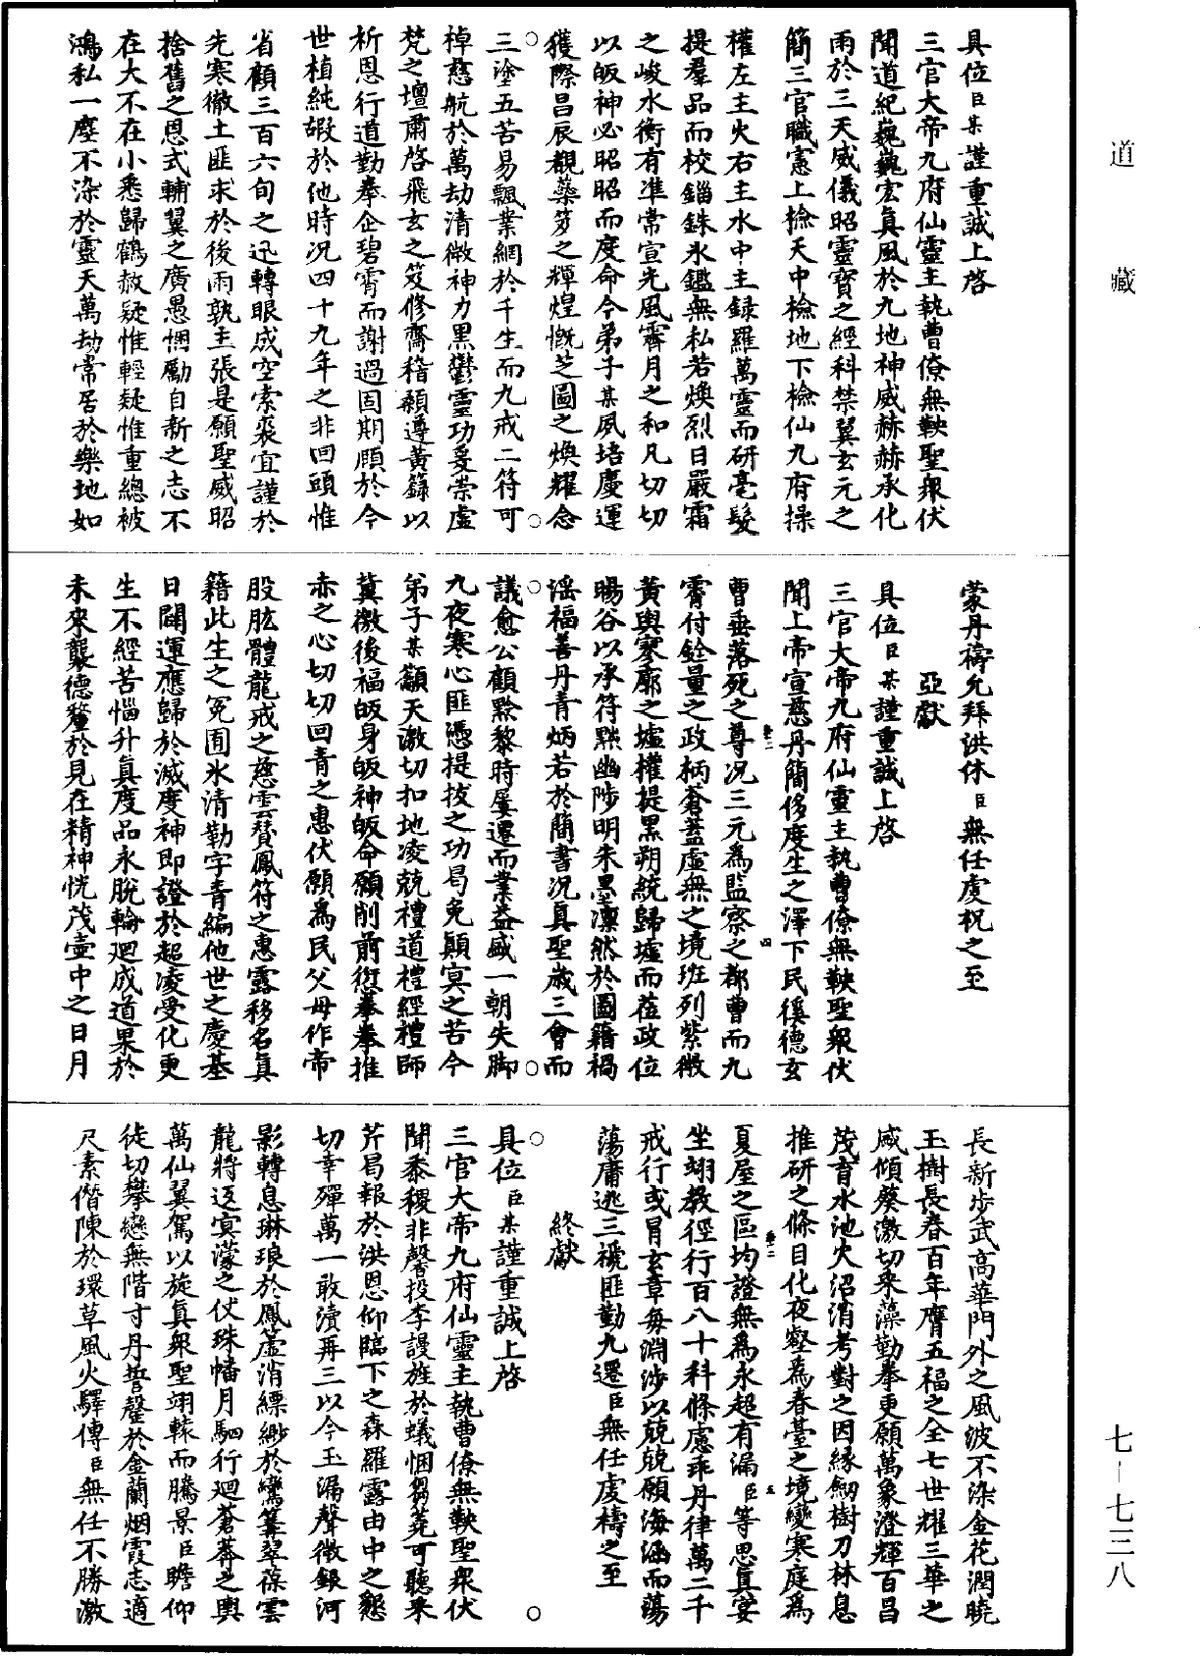 道藏
七－七三八
具位臣某謹重誠上啓
三官大帝九府仙靈主執曹僚無鞅聖衆伏
聞道紀巍巍宏真風於九地神威赫赫承化
雨於三天威儀昭靈寶之經科禁翼玄元之
簡三官職憲上檢天中檢地下檢仙九府操
權左主火右主水中主録羅萬靈而研毫髮
提羣品而校錙銖氷鑑無私若煥烈日嚴霜
之峻水衡有準常宣光風霽月之和凡切切
以皈神必昭昭而度命今弟子某夙培慶運
獲際昌辰覩蘂笈之輝煌慨芝圖之煥耀念
三塗五苦易飄業網於千生而九戒二符可
棹慈航於萬劫清微神力黑鬱靈功爰崇虛
梵之壇肅啓飛玄之笈修齋稽願遵黃籙以
析恩行道勤奉企碧霄而謝過固期順於今
世植純嘏於他時况四十九年之非回頭惟
省顧三百六旬之迅轉眼成空索裘宜謹於
先寒徹土匪求於後雨孰主張是願聖威昭
捨舊之恩式輔翼之廣愚悃勵自新之志不
在大不在小悉歸鶴赦疑惟輕疑惟重總被
鴻私一塵不染於靈天萬劫常居於樂地如
蒙丹禱允拜洪休臣無任虔祝之至
亞獻
具位臣某謹重誠上啓
三官大帝九府仙靈主執曹僚無鞅聖衆伏
聞上帝宣慈丹簡侈度生之澤下民徯德玄
曹垂落死之尊况三元爲監察之都曹而九
霄付銓量之政柄蒼蓋虛無之境班列紫微
黃輿寥廓之墟權提黑朔統歸墟而莅政位
暘谷以承符黜幽陟明朱墨凜然於圖籍禍
淫福善丹青炳若於簡書况真聖歲三會而
議愈公顧黔黎時屢遷而業益盛一朝失脚
九夜寒心匪憑提拔之功曷免顛冥之苦今
弟子某籲天激切扣地凌兢禮道禮經禮師
冀徼後福皈身皈神皈命願削前愆拳拳推
赤之心切切回青之惠伏願爲民父母作帝
股肱體龍戒之慈雲賛鳳符之惠露移名真
籍此生之冤囿氷清勒字青編他世之慶基
日闢運應歸於滅度神即證於超凌受化更
生不經苦惱升真度品永脫輪廻成道果於
未來襲德釐於見在精神恍茂壺中之日月
長新步武高華門外之風波不染金花潤曉
玉樹長春百年膺五福之全七世耀三華之
咸傾葵激切釆藻勤拳更願萬象澄輝百昌
茂育水池火沼消考對之因縁劒樹刀林息
推研之條目化夜壑爲春臺之境變寒庭爲
夏屋之區均證無爲永超有漏臣等思真宴
坐翊教徑行百八十科條慮乖丹律萬二千
戒行或冒玄章每淵涉以兢兢願海涵而蕩
蕩庸逃三禠匪勤九遷臣無任虔禱之至
終獻
具位臣某謹重誠上啓
三官大帝九府仙靈主執曹僚無鞅聖衆伏
聞黍稷非馨投李謾旌於蟻悃芻蕘可聽釆
芹曷報於洪恩仰臨下之森羅露由中之懇
切幸殫萬一敢瀆再三以今玉漏聲微銀河
影轉息琳琅於鳳簴消縹緲於鸞篝翠葆雲
龍將迓冥濛之仗珠幡月駟行廻蒼莽之輿
萬仙翼駕以旋真衆聖翊轅而騰景臣瞻仰
徒切攀戀無階寸丹誓罄於金蘭烟霞志適
尺素僭陳於環草風火驛傳臣無任不勝激